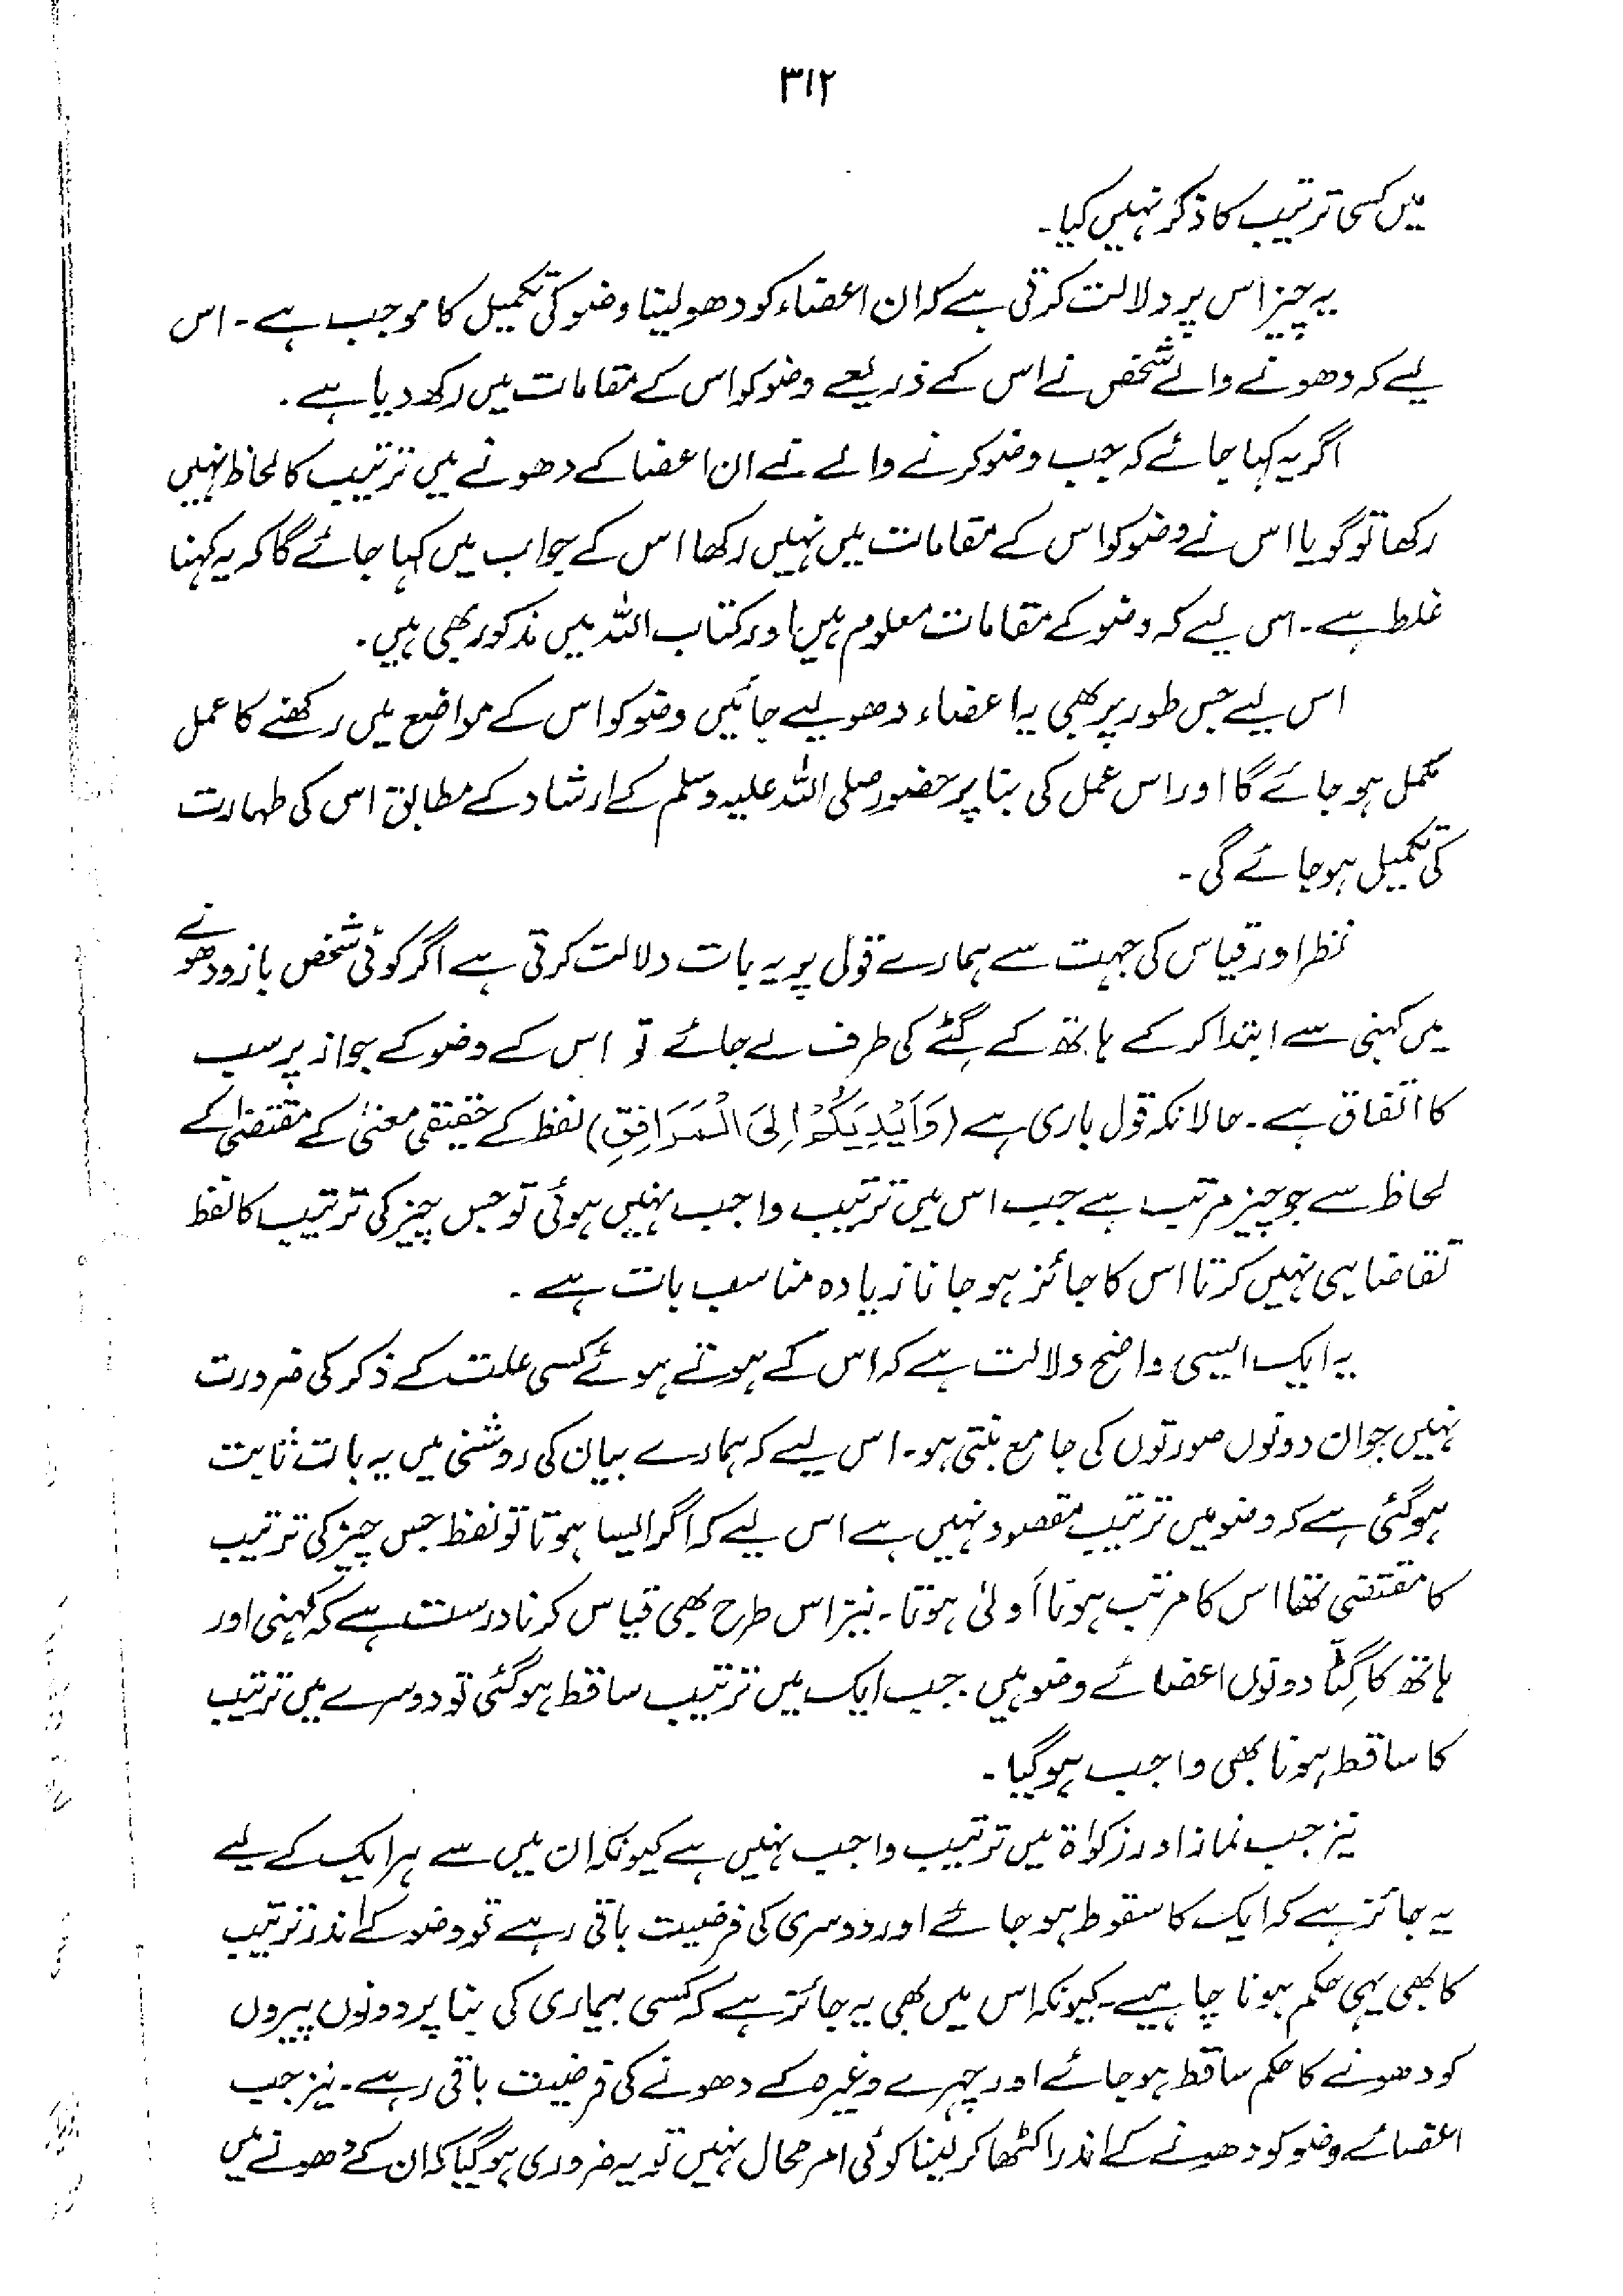 ۳۱۲
میں کسی ترتیب کا ذکر نہیں کیا۔
یہ چیز اس پر دلالت کرتی ہے کہ ان اعضاء کو دھو لینا وضو کی تکمیل کا موجب ہے۔ اس
لیے کہ دھونے والے شخص نے اس کے ذریعے وضو کو اس کے مقامات میں رکھ دیا ہے۔
اگر یہ کہا جائے کہ جب وضو کرنے والے نے ان اعضا کے دھونے میں ترتیب کا لحاظ نہیں
رکھا تو گویا اس نے وضو کو اس کے مقامات میں نہیں رکھا اس کے جواب میں کہا جائے گا کہ یہ کہنا
غلط ہے۔ اس لیے کہ وضو کے مقامات معلوم ہیں اور کتاب اللہ میں مذکور بھی ہیں۔
اس لیے جس طور پر بھی یہ اعضاء دھو لیے جائیں وضو کو اس کے مواضع میں رکھنے کا عمل
مکمل ہو جائے گا اور اس عمل کی بنا پر حضور صلی اللہ علیہ وسلم کے ارشاد کے مطابق اس کی طہارت
کی تکمیل ہو جائے گی۔
نظر اور قیاس کی جہت سے ہمارے قول پر یہ بات دلالت کرتی ہے اگر کوئی شخص بازو دھونے
میں کہنی سے ابتدا کر کے ہاتھ کے گٹے کی طرف لے جائے تو اس کے وضو کے جواز پر سب
کا اتفاق ہے۔ حالانکہ قول باری ہے (وَاَيْدِيَكُمْ اِلَى الْمَرَافِقِ) لفظ کے حقیقی معنیٰ کے مقتضیٰ کے
لحاظ سے جو چیز مرتب ہے جب اس میں ترتیب واجب نہیں ہوئی تو جس چیز کی ترتیب کا لفظ
تقاضا ہی نہیں کرتا اس کا جائز ہو جانا زیادہ مناسب بات ہے۔
یہ ایک ایسی واضح دلالت ہے کہ اس کے ہوتے ہوئے کسی علت کے ذکر کی ضرورت
نہیں جو ان دونوں صورتوں کی جامع بنتی ہو۔ اس لیے کہ ہمارے بیان کی روشنی میں یہ بات ثابت
ہو گئی ہے کہ وضو میں ترتیب مقصود نہیں ہے اس لیے کہ اگر ایسا ہوتا تو لفظ جس چیز کی ترتیب
کا مقتضی تھا اس کا مرتب ہونا اَولیٰ ہوتا۔ نیز اس طرح بھی قیاس کرنا درست ہے کہ کہنی اور
ہاتھ کا گِٹّا دونوں اعضائے وضو ہیں۔ جب ایک میں ترتیب ساقط ہو گئی تو دوسرے میں ترتیب
کا ساقط ہونا بھی واجب ہو گیا۔
نیز جب نماز اور زکواۃ میں ترتیب واجب نہیں ہے کیونکہ ان میں سے ہر ایک کے لیے
یہ جائز ہے کہ ایک کا سقوط ہو جائے اور دوسری کی فرضیت باقی رہے تو وضو کے اندر ترتیب
کا بھی یہی حکم ہونا چاہیے۔ کیونکہ اس میں بھی یہ جائز ہے کہ کسی بیماری کی بنا پر دونوں پیروں
کو دھونے کا حکم ساقط ہو جائے اور چہرے وغیرہ کے دھونے کی فرضیت باقی رہے۔ نیز جب
اعضائے وضو کو دھونے کے اندر اکٹھا کر لینا کوئی امر محال نہیں تو یہ ضروری ہو گیا کہ ان کے دھونے میں